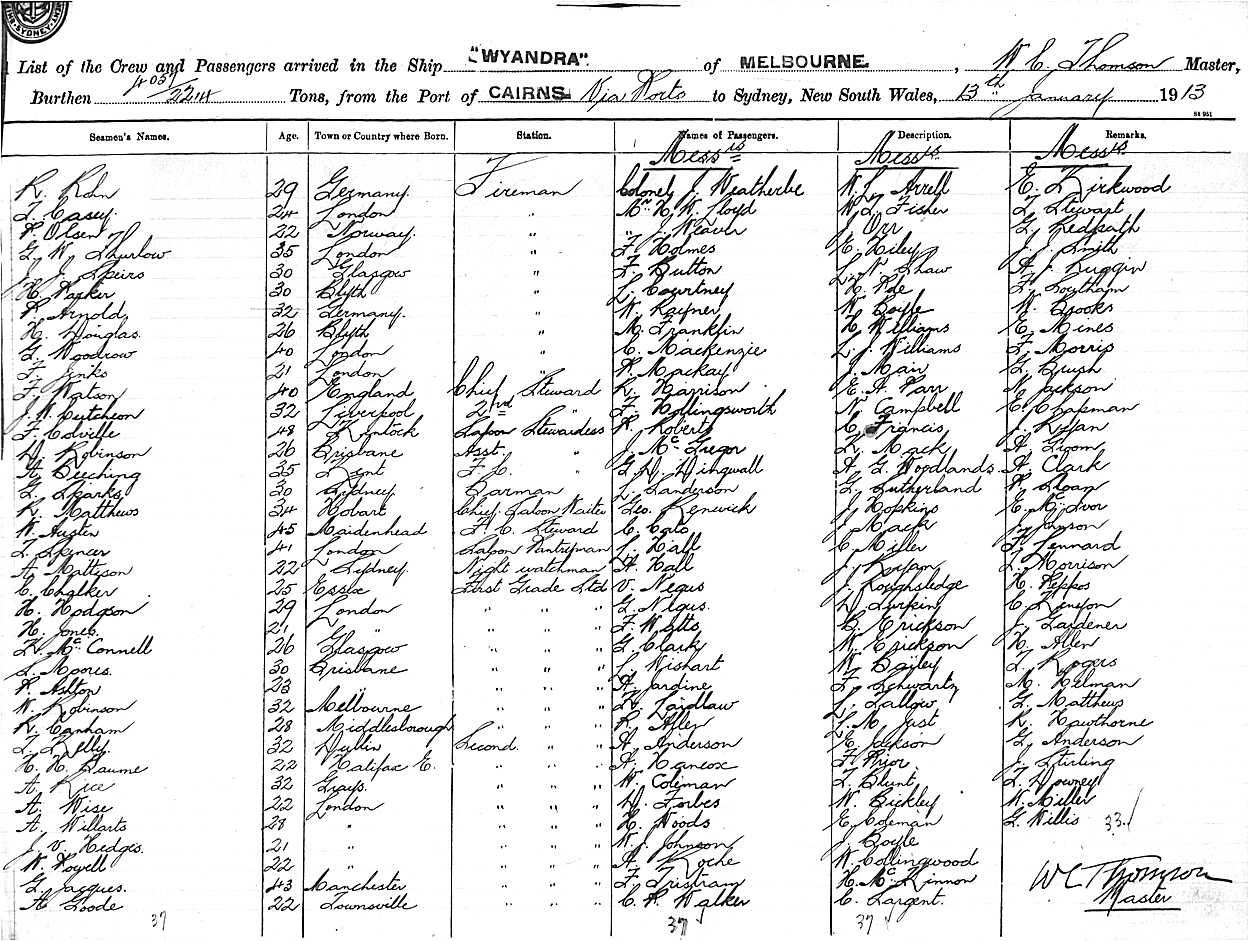 SYDNEY
List of the Crew and Passengers arrived in the Ship "WYANDRA" of MELBOURNE, W. C. Thomson Master,
Burthen 4058/2214 Tons, from the Port of CAIRNS Via Ports to Sydney, New South Wales, 13th January 1913
Seamen's Names. Age. Town or Country where Born. Station. Names of Passengers. Description. Remarks.
Messrs Messrs Messrs
R. Rohn 29 Germany. Fireman Colonel J. Weatherbe W. L. Arrell E. Kirkwood
T. Casey. 24 London " Mr. H. W. Lloyd W. L. Fisher T. Stewart
P. Olsen 22 Norway. " " J. Weaver J. Orr G. Redpath
G. W. Thurlow 35 London " F. Holmes E. Hiley J. J. Smith
J. J. Speirs 30 Glasgow " F. Button L. N. Shaw A. J. Duggin
H. Parker 30 Blyth " L. Courtney H. Poe
P. Arnold, 32 Germany. " W. Rayner W. Boyle W. Brooks
H. Douglas. 26 Blyth " M. Franklin H. Williams E. Mines
G. Woodrow 40 London " C. Mackenzie L. J. Williams F. Morris
F. Jinks 21 London " P. Mackay J. Mair G. Brush
F. Watson 40 England Chief Steward R. Harrison E. A. Parr N. Jackson
J. W. Hutcheon 32 Liverpool 2nd " F. Hollingsworth N. Campbell E. Chapman
F. Colville 48 Saloon Stewardess P. Roberts C. Francis J. Ryan
D. Robinson 26 Brisbane Asst. " J. McGregor L. Mack A.
A. Beeching 35 Kent F. C. " G. D. Dingwall A. G. Woodlands A. Clark
G. Sparks, 30 Sydney. Barman L. Sanderson G. Sutherland P. Sloan
R. Matthews 34 Hobart Chief Saloon Waiter Geo. Renwick J. Hopkins E. McIvor
W. Austen 45 Maidenhead F. C. Steward C. Cato J. Mack J. Johnson
T. Spencer 41 London Saloon Pantryman L. Hall C. Miller F. Lennard
A. Mattison 22 Sydney. Night watchman A. Hall J. L. Morrison
C. Chalker 25 Essex First Grade Std V. Negus J. Roughsledge H. Peppos
H. Hodgson 29 London " " " G. Negus. D. Durkin C. Kenyon
H. Jones. 21 " " " " F. Watts B. Erickson J. Gardener
L. McConnell 26 Glasgow " " " G. Clark W. Erickson H. Allen
S. Moores. 30 Brisbane " " " L. Wishart W. Bayley T. Rogers
P. Aslton 23 " " " A. Jardine F. Schwartz M. Helman
W. Robinson 32 Melbourne " " " D. Laidlaw S. Sallow G. Matthews
R. Canham 28 Middlesborough " " " R. Allen L. M. Just R. Hawthorne
T. Kelly. 32 Dublin Second. " " A. Anderson E. Jackson G. Anderson
H. H. Gaume 22 Halifax E. " " " A. Hancox F. Prior. J. Stirling
A. Rice 32 Grays. " " " W. Coleman T. Blunt T. Downey
A. Wise 22 London " " " D. Forbes W. Bickley W. Miller
A. Willarts 28 " " " " H. Woods E. Coleman G. Willis 33
J. V. Hedges. 21 " " " " W. J. Johnson J. Boyle
W. Powell 22 " " " " A. Roche W. Collingwood
G. Jacques. 43 Manchester " " " F. Tristram H. McKinnon WC Thomson
A. Goode 22 Townsville " " " C. P. Walker C. Sargent. Master
37 37 37